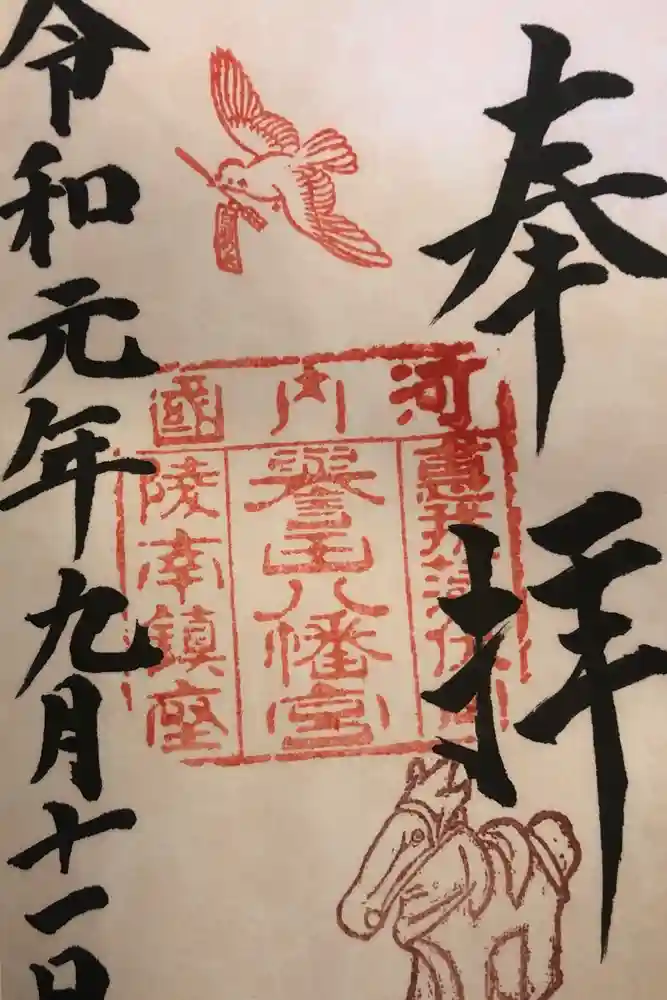 奉拝
河内國
誉田八幡宮
陵南鎮座
令和元年九月十一日